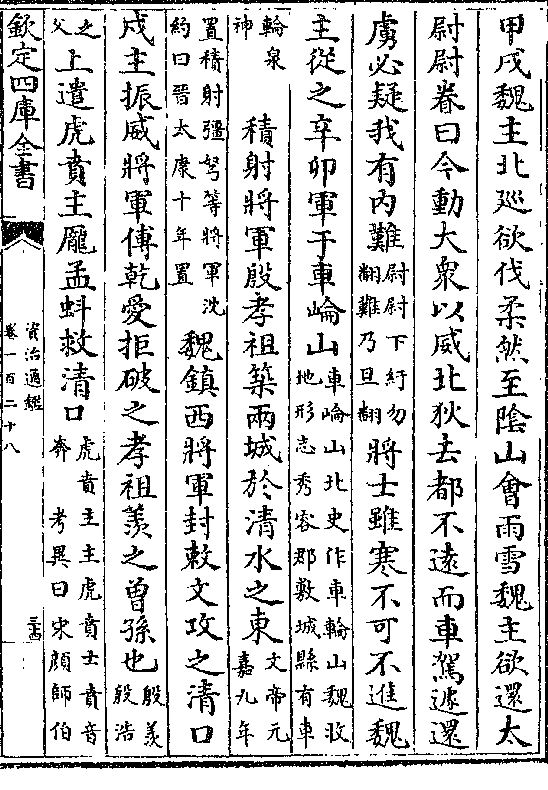 甲戌魏主北廵欲伐柔然至陰山㑹雨雪魏主欲還太
尉尉眷曰今動大衆以威北狄去都不逺而車駕遽還
虜必疑我有内難尉尉下紆勿翻難乃旦翻將士雖寒不可不進魏
主從之辛卯軍于車崘山車崘山北史作車輪山魏收地形志秀容郡敷城縣有車
輪泉神 積射將軍殷孝祖築兩城於清水之東文帝元嘉九年
置積射彊弩等將軍沈約曰晉太康十年置 魏鎮西將軍封敕文攻之清口
戍主振威將軍傅乾愛拒破之孝祖羡之曽孫也殷羡殷浩
之父上遣虎賁主龎孟蚪救清口虎賁主主虎賁士賁音奔 考異曰宋顔師伯
欽定四庫全書
資治通鑑
卷一百二十八
三古